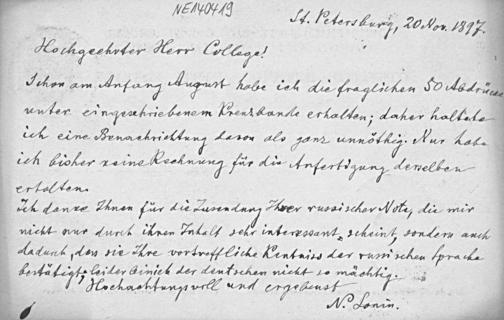 NE140419
St. Petersburg, 20 Nov. 1897.
Hochgeehrter Herr College!
Schon am Anfang August habe ich die fraglichen 50 Abdrücke
unter eingeschriebenem Kreuzbande erhalten; daher halte
ich eine Benachrichtung davon als ganz unnöthig. Nur habe
ich bisher keine Rechnung für die Anfertigung derselben
erhalten.
Ich danke Ihnen für die Zusendung Ihrer russischer Note, die mir
nicht nur durch ihren Inhalt sehr interessant scheint, sondern auch
dadurch, dass sie Ihre vortreffliche Kentniss der russischen Sprache
bestätigt; leider bin ich der deutschen nicht so mächtig.
Hochachtungsvoll und ergebenst
N. Sonin.